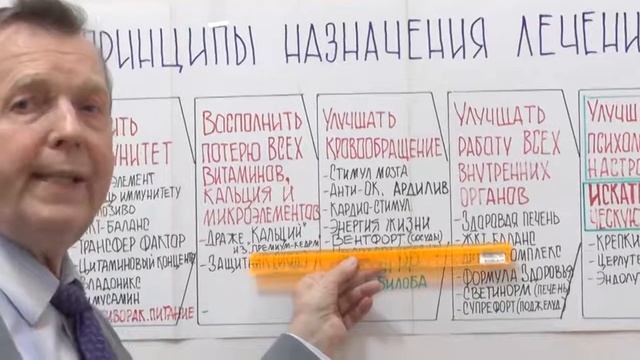 ПРИНЦИПЫ НАЗНАЧЕНИЯ ЛЕЧЕНИ
ИТЬ
УНИТЕТ
ЭЛЕМЕНТ
ИММУНИТЕТУ
ОЗИВО
ЖКТ-БАЛАНС
ТРАНСФЕР ФАКТОР
ЦИТАМИНОВЫЙ КОНЦЕНТ
ВЛАДОНИКС
ИМУСАЛИН
ИВОРАК.ПИТАНИЕ
ВОСПОЛНИТЬ
ПОТЕРЮ ВСЕХ
ВИТАМИНОВ,
КАЛЬЦИЯ И
МИКРОЭЛЕМЕНТОВ
-ДРАЖЕ "КАЛЬЦИЙ"
ИЗ "ПРЕМИУМ-КЕДРМ
-ЗАЩИТ
-
УЛУЧШАТЬ
КРОВООБРАЩЕНИЕ
-СТИМУЛ МОЗГА
-АНТИ-ОК, АРДИЛИВ
-КАРДИО-СТИМУЛ
-ЭНЕРГИЯ ЖИЗНИ
-ВЕНТФОРТ (СОСУДЫ)
БИЛОБА
УЛУЧШАТЬ
РАБОТУ ВСЕХ
ВНУТРЕННИХ
ОРГАНОВ
-ЗДОРОВАЯ ПЕЧЕНЬ
-ЖКТ БАЛАНС
ОМПЛЕКС
-ФОРМУЛА ЗДОРОВЬЯ
-СВЕТИНОРМ (ПЕЧЕНЬ)
-СУПРЕФОРТ (ПОДЖЕЛУД.)
УЛУЧШ
ПСИХОЛО
НАСТРО
ИСКАТ
ЧЕСКУЮ
-КРЕПКИ
-ЦЕРЛУТЕ
-ЭНДОЛУ